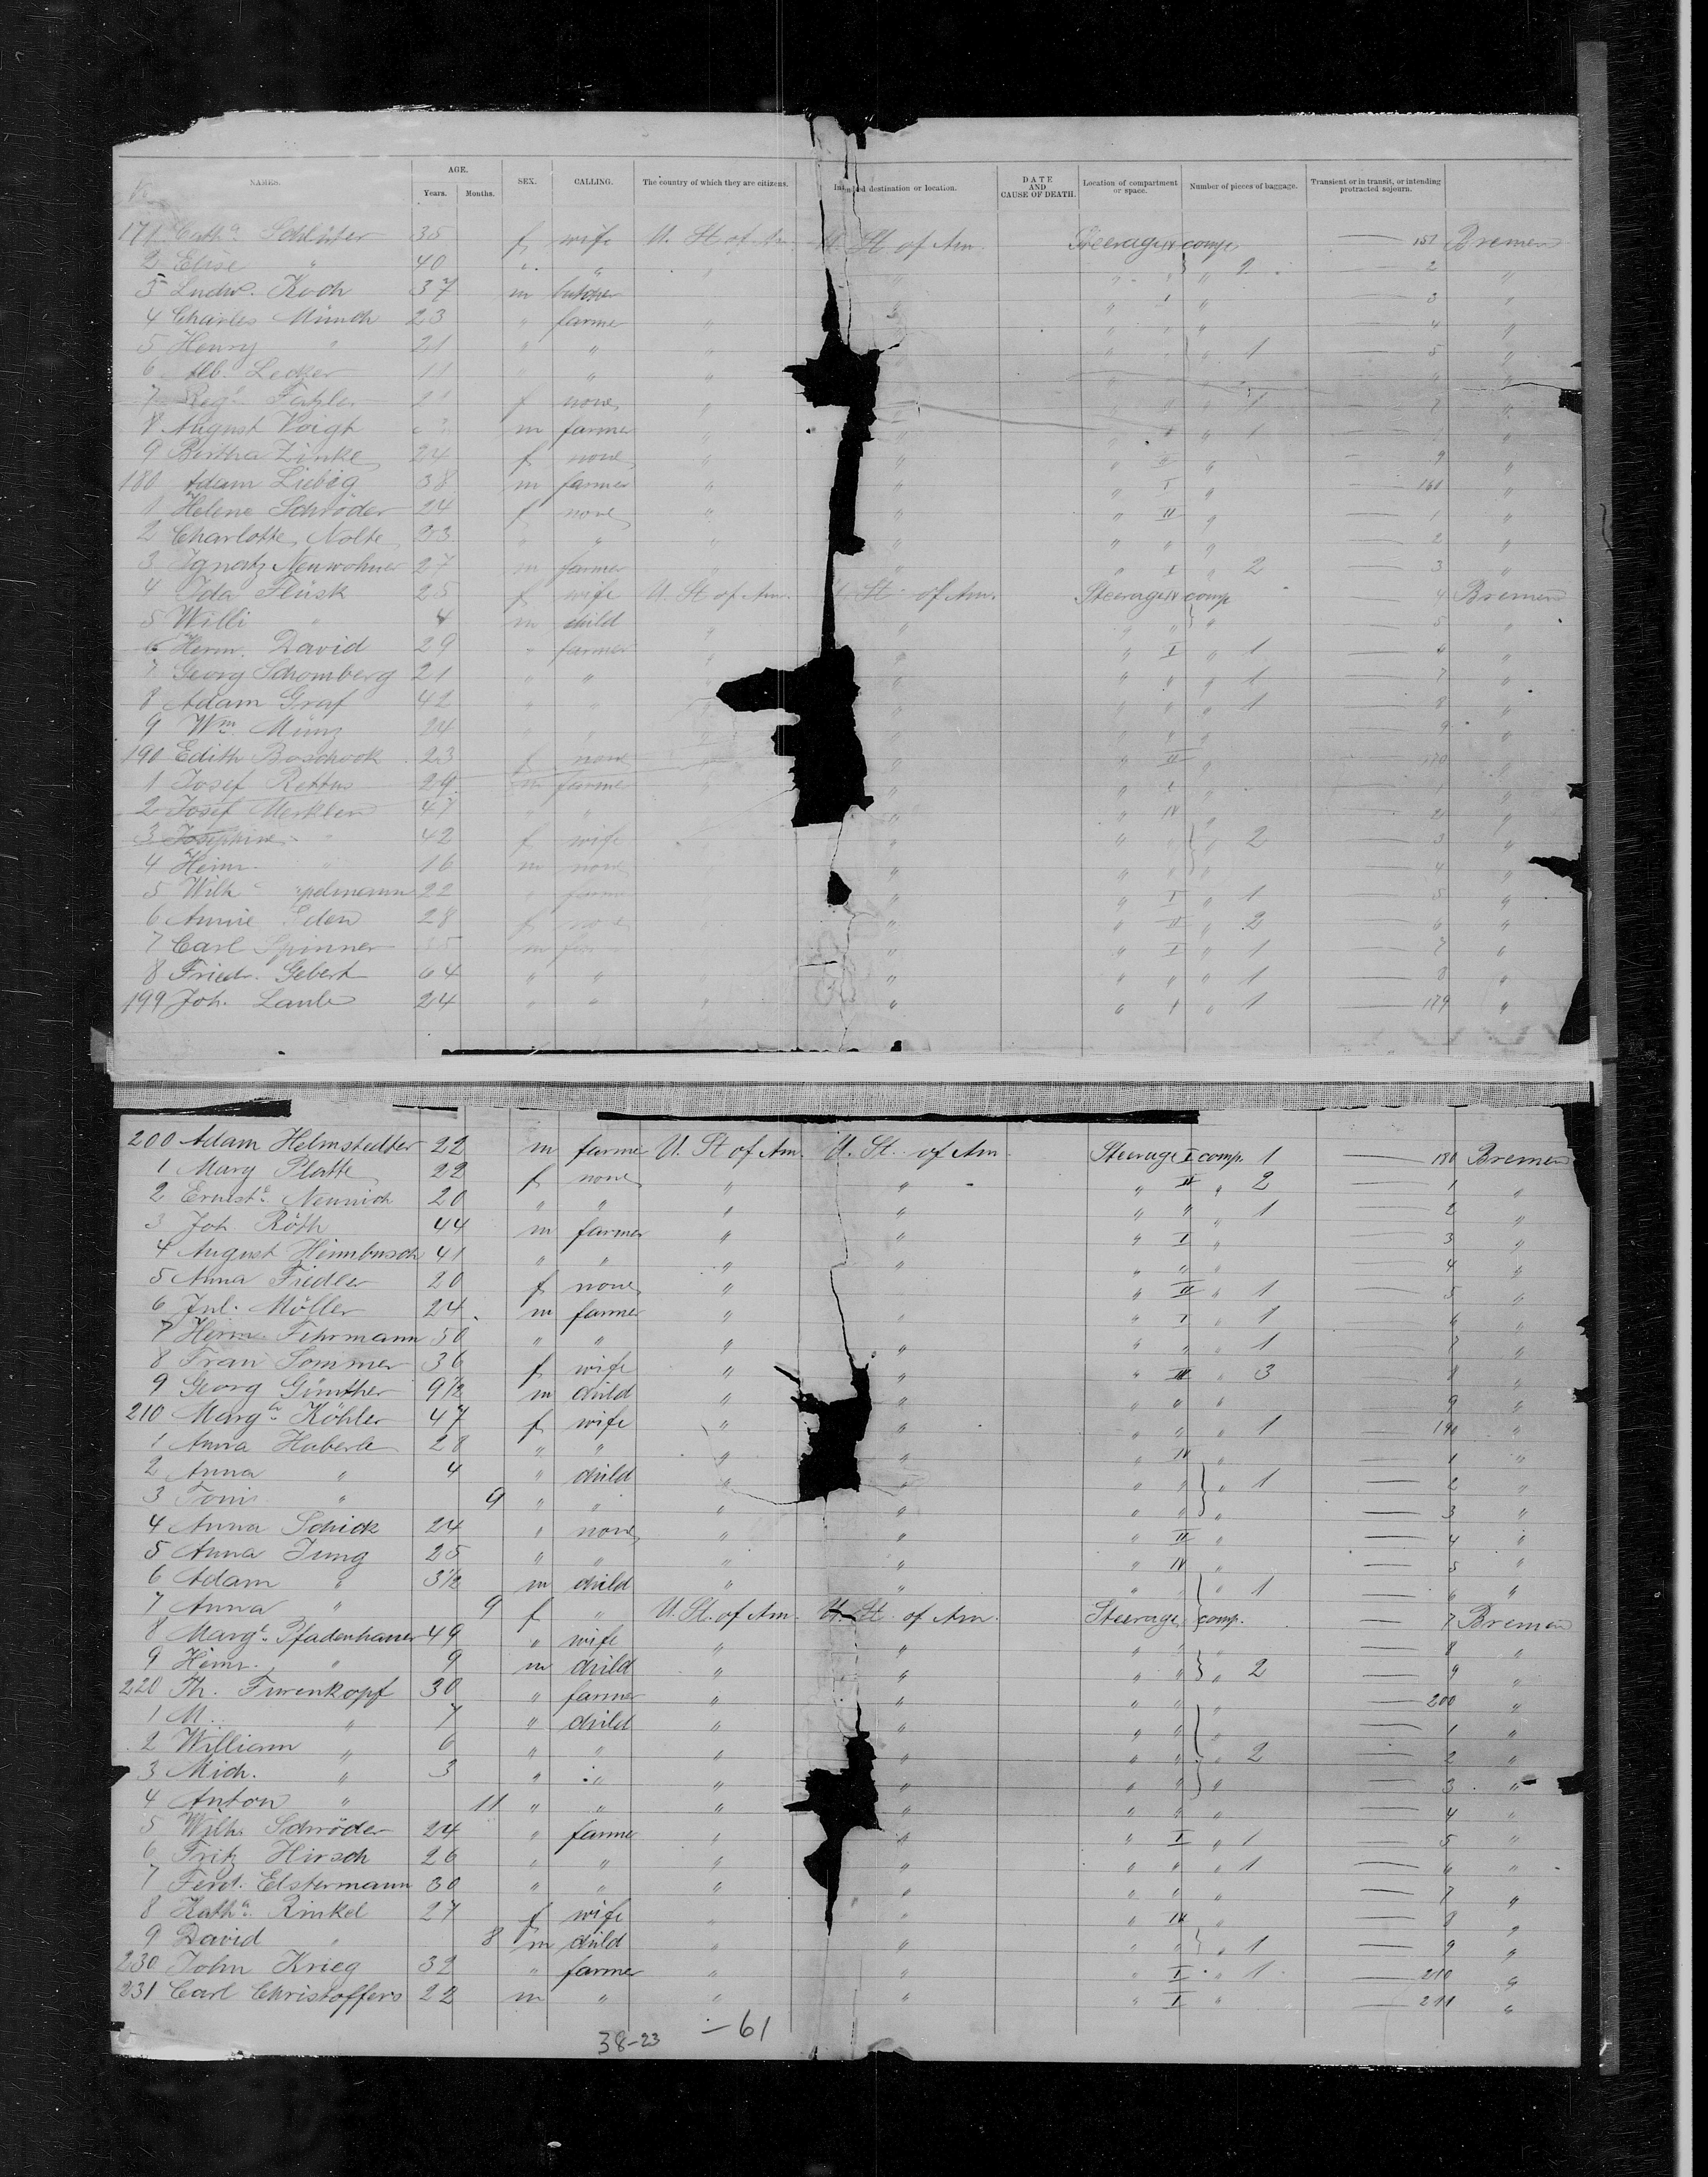 NAMES. AGE. Years. Months. SEX. CALLING. The country of which they are citizens. Intended destination or location. DATE AND CAUSE OF DEATH. Location of compartment or space. Number of pieces of baggage. Transient or in transit, or intending protracted sojourn.
171 Cath.a Schlüter 35 f wife U. St of Am. U. St. of Am. Steerage IV comp. — 151 Bremen
2 Elise " 40 " " " " " " " 2 — 2 "
3 Ludw. Koch 37 m butcher " " I " — 3 "
4 Charles Münch 23 " farmer " " " " " — 4 "
5 Henry " 21 " " " " " " " 1 — 5 "
6 Alb. Lecker 11 " " " " " " "
7 Reg. Fatzler 21 f none " " " " " 1 — 7 "
8 August Voigt m farmer " " " I " 1 — "
9 Bertha Zinke 24 f none " " " II " — 9 "
180 Adam Liebig 38 m farmer " " " I " — 161 "
1 Helene Schröder 24 f none " " " II " — 1 "
2 Charlotte Nolte 23 " " " " " " " — 2 "
3 Ignatz Neuwohner 27 m farmer " " " I " 2 — 3 "
4 Ida Flüsk 25 f wife U. St of Am. U. St. of Am. Steerage IV comp — 4 Bremen
5 Willi " 4 m child " " " " " — 5 "
6 Herm. David 29 " farmer " " " I " 1 — 6 "
7 Georg Schomberg 21 " " " " " " " 1 — 7 "
8 Adam Graf 42 " " " " " " " 1 — 8 "
9 Wm. Münz 24 " " " " " " " — 9 "
190 Edith Boschook 23 f none " " " II " — 170 "
1 Josef Rettus 29 m farmer " " " I " — 1 "
2 Josef Merkben 47 " " " " IV " — 2 "
3 Josephine " 42 f wife " " " " " 2 — 3 "
4 Heinr. " 16 m none " " " " — 4 "
5 Wilh. pelmann 22 " farmer " " I " 1 — 5 "
6 Annie Eden 28 f none " " " II " 2 — 6 "
7 Carl Spinner 35 m " " I " 1 — 7 "
8 Friedr. Gebert 64 " " " " " " 1 — 8 "
199 Joh. Laube 24 " " " " " I " 1 — 179 "
200 Adam Helmstedter 22 m farmer U. St of Am. U. St. of Am. Steerage I comp. 1 — 180 Bremen
1 Mary Platte 22 f none " " " II " 2 — 1 "
2 Ernst.e Nennich 20 " " " " " " " 1 — 2 "
3 Joh. Röth 44 m farmer " " " I " — 3 "
4 August Heimbusch 41 " " " " " " " — 4 "
5 Anna Fiedler 20 f none " " II " 1 — 5 "
6 Jul. Möller 24 m farmer " " " I " 1 — 6 "
7 Herm. Fehrmann 50 " " " " " " " 1 — 7 "
8 Frau Sommer 36 f wife " " " III " 3 — 8 "
9 Georg Günther 9½ m child " " " " " — 9 "
210 Marg.a Köhler 47 f wife " " " " " 1 — 190 "
1 Anna Haberle 28 " " " " " IV " — 1 "
2 Anna " 4 " child " " " " " 1 — 2 "
3 Toni " 9 " " " " " " " — 3 "
4 Anna Schick 24 " none " " " II " — 4 "
5 Anna Jung 25 " " " " " IV " — 5 "
6 Adam " 3½ m child " " " " " 1 — 6 "
7 Anna " 9 f " U. St. of Am. U. St. of Am. Steerage comp. — 7 Bremen
8 Marg.e Pfadenhauer 49 " wife " " " " — 8 "
9 Heinr. " 9 m child " " " " " 2 — 9 "
220 Th. Turenkopf 30 " farmer " " " " " — 200 "
1 M. " 7 " child " " " " — 1 "
2 William " 6 " " " " " " " 2 — 2 "
3 Mich. " 3 " " " " " " " — 3 "
4 Anton " 11 " " " " " " " — 4 "
5 Wilh. Schröder 24 " farmer " " " I " 1 — 5 "
6 Fritz Hirsch 26 " " " " " " " 1 — 6 "
7 Ferd. Elstermann 30 " " " " " " " — 7 "
8 Kath.a Rinkel 27 f wife " " " IV " — 8 "
9 David " 8 m child " " " " " 1 — 9 "
230 John Krieg 32 " farmer " " " I " 1 — 210 "
231 Carl Christoffers 22 m " " " " I " — 211 "
38-23 — 61